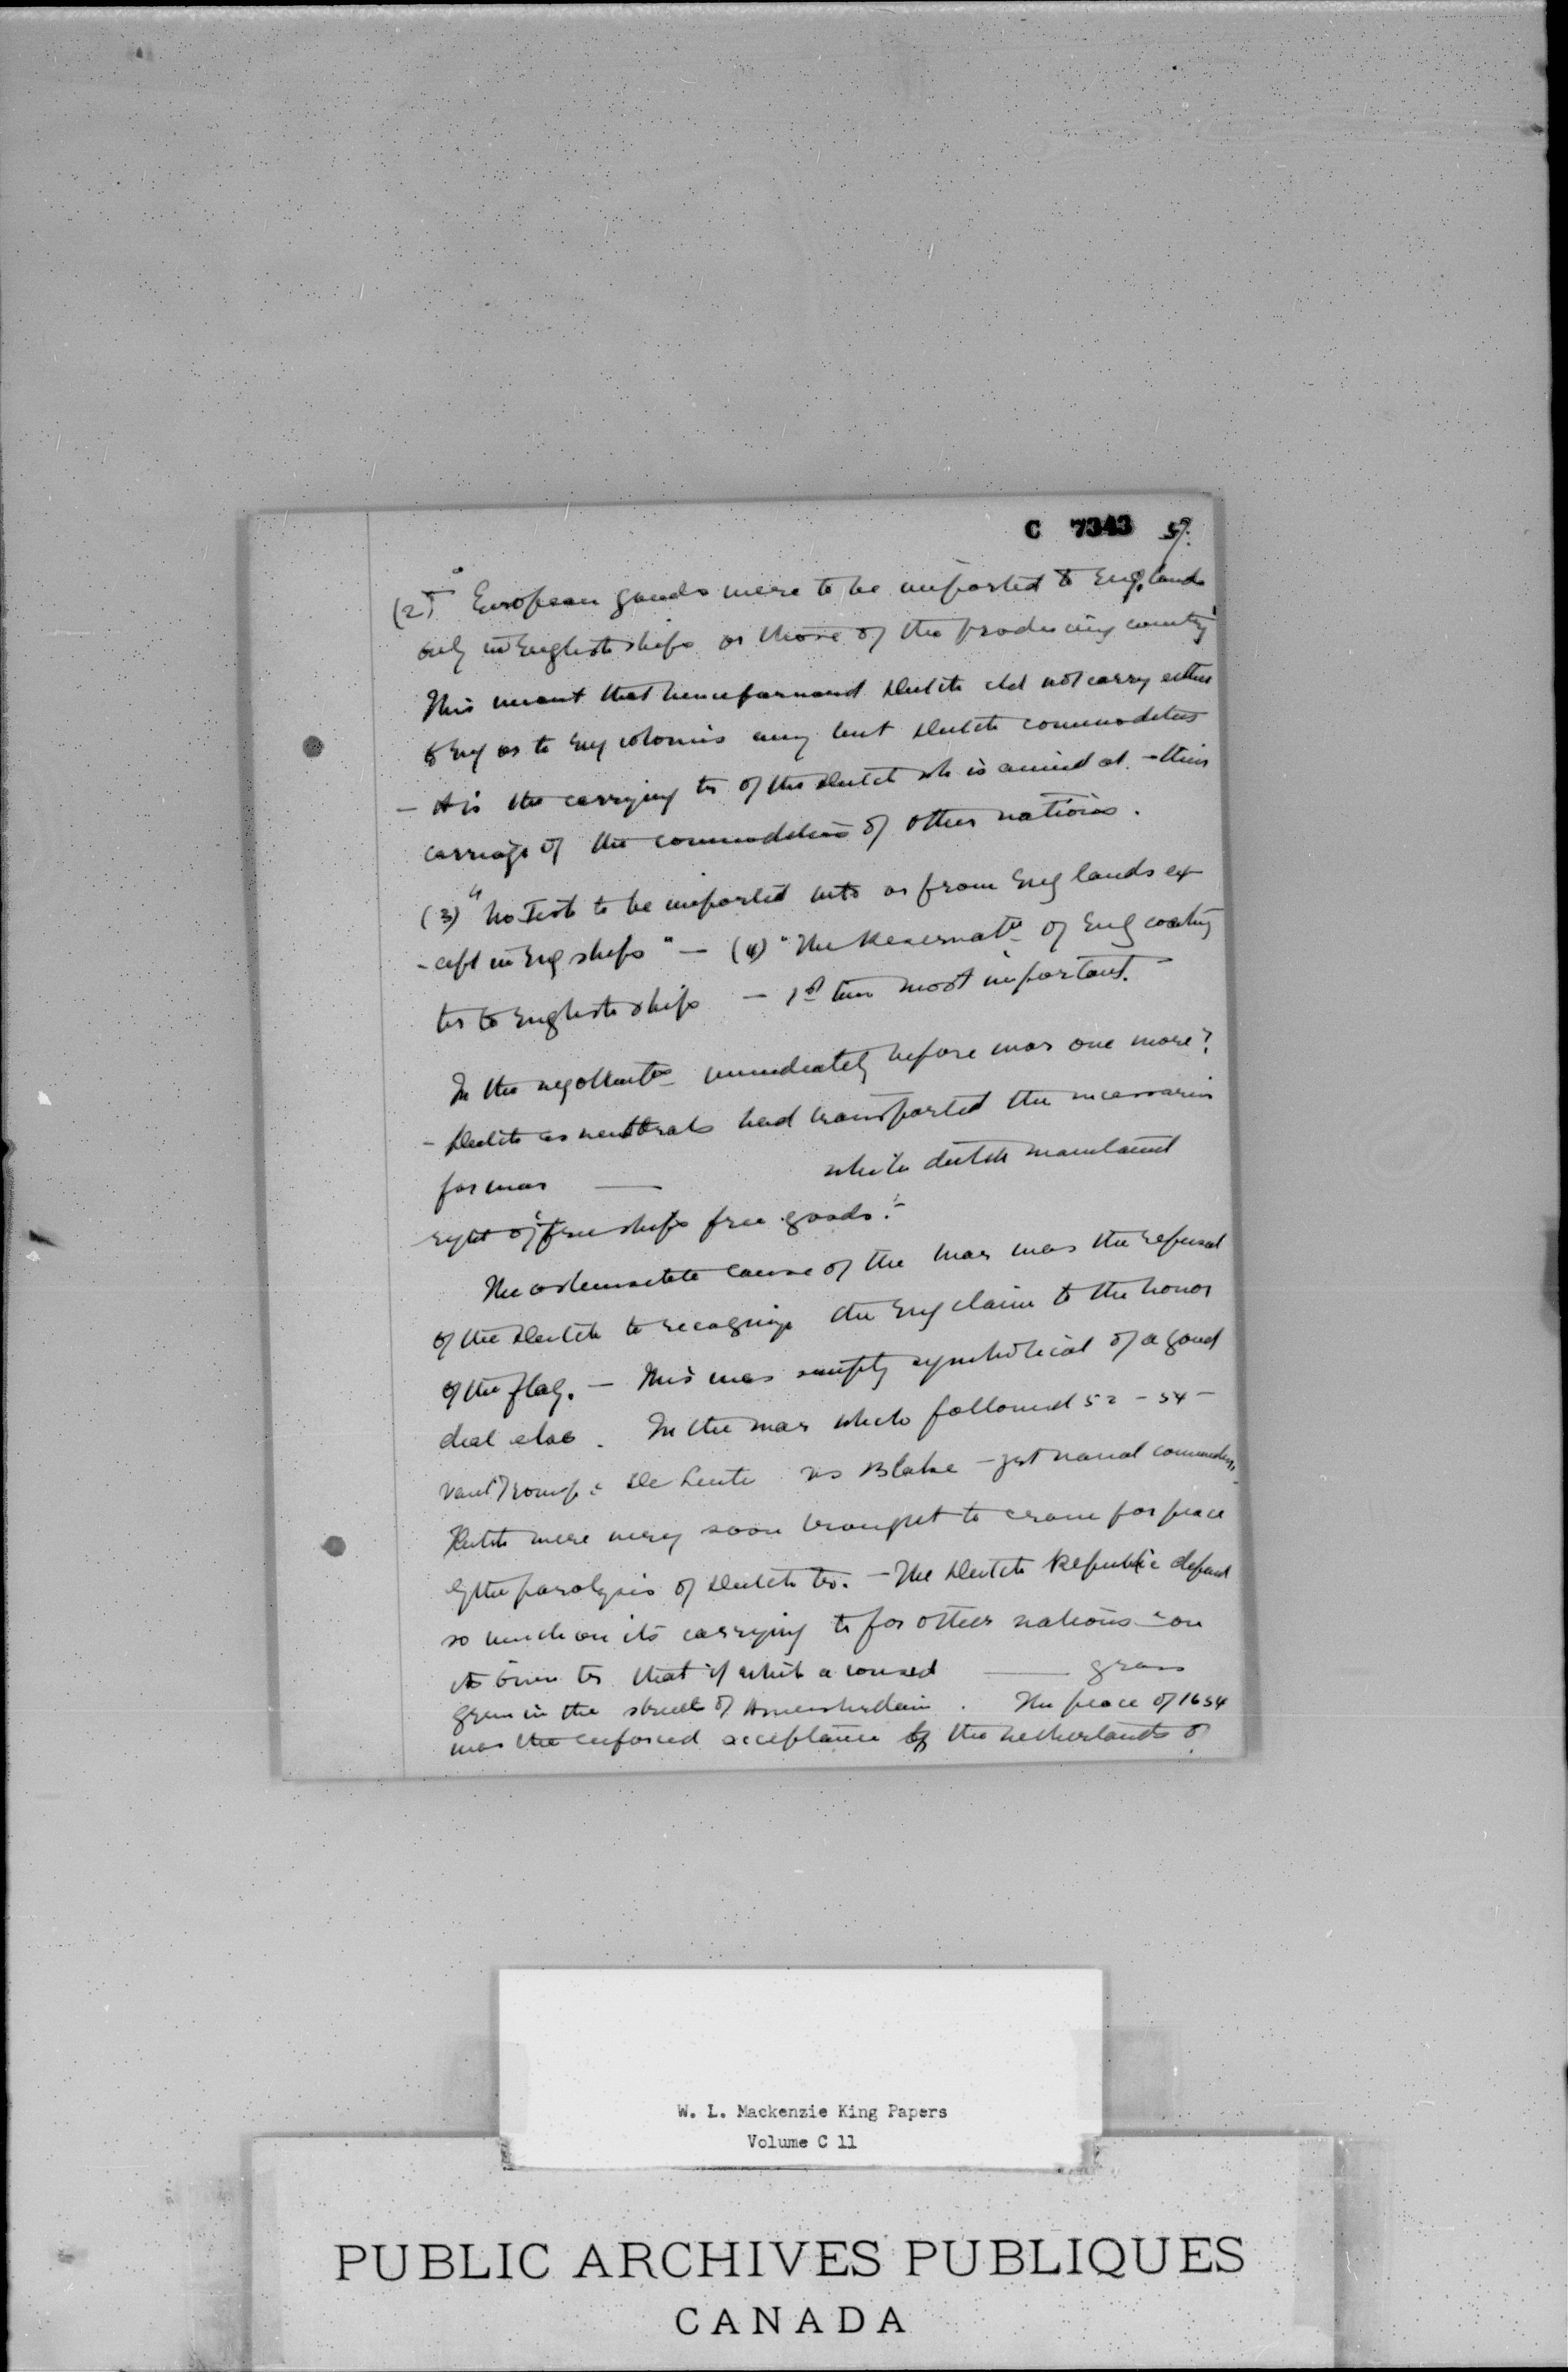 C 7343 57.
(2) " European goods were to be imported to Eng. lands
only in English ships or those of the producing country"
This meant that henceforward Dutch did not carry either
to Eng or to Eng colonies any but Dutch commodities
- It is the carrying tr of the Dutch wh is aimed at - their
carriage of the commodities of other nations.
(3) "No fish to be imported into or from Eng lands ex-
-cept in Eng ships" - (4) "The Reservatn of Eng coasting
tr to English ships - 1st two most important.
In the negotiatns immediately before was one more?
- Dutch as neutrals had transported the necessaries
for war — while dutch maintained
right of "free ships free goods."
The ostensible cause of the war was the refusal
of the Dutch to recognize the Eng claim to the honor
of the flag. - This was simply symbolical of a good
deal else. In the war which followed 52 - 54 -
Van Tromp & De vs Blake - gst naval commanders.
Dutch were very soon brought to crave for peace
by the paralysis of Dutch tr. - The Dutch Republic depend
so much on its carrying tr for other nations & on
its own tr that if which a — grass
grew in the streets of Amersterdam. The peace of 1654
was the enforced acceptance by the Netherlands of
W. L. Mackenzie King Papers
Volume C 11
PUBLIC ARCHIVES PUBLIQUES
CANADA